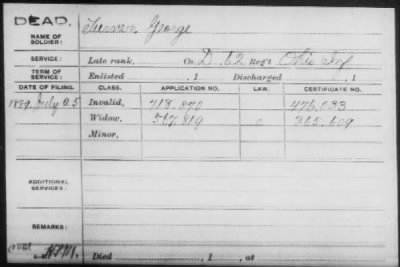 DEAD.
NAME OF SOLDIER: George
SERVICE: Late rank, Co. D, 62 Reg't Ohio Inf
TERM OF SERVICE: Enlisted , 1 Discharged , 1
DATE OF FILING. CLASS. APPLICATION NO. LAW. CERTIFICATE NO.
1889, July 25 Invalid, 718.970 476.033
Widow, 567.819 365.609
Minor,
ADDITIONAL SERVICES:
REMARKS:
Died , 1 , at